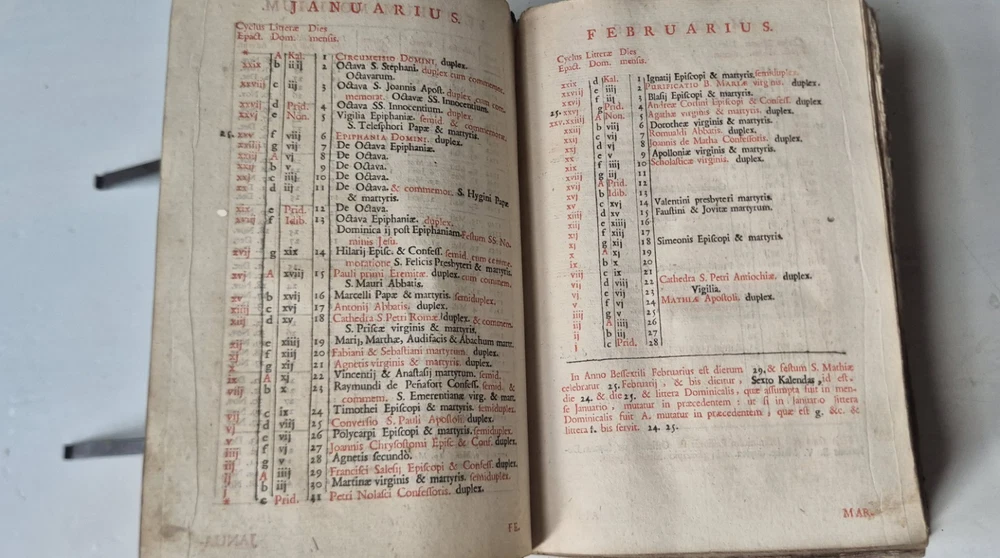 JANUARIUS.
Cyclus Litteræ Dies
Epact. Dom. mensis.
* A Kal. 1 CIRCUMCISIO DOMINI. duplex.
xxix b iiij 2 Octava S. Stephani. duplex cum commem.
Octavarum.
xxviij c iij 3 Octava S. Joannis Apost. duplex cum com-
memorat. Octavæ SS. Innocentium.
xxvij d Prid. 4 Octava SS. Innocentium. duplex.
xxvj e Non. 5 Vigilia Epiphaniæ. semid & commemorat.
S. Telesphori Papæ & martyris.
25. xxv f viij 6 EPIPHANIA DOMINI. duplex.
xxiiij g vij 7 De Octava Epiphaniæ.
xxiij A vj 8 De Octava.
xxij b v 9 De Octava.
xxj c iiij 10 De Octava.
xx d iij 11 De Octava. & commemor. S. Hygini Papæ
& martyris.
xix e Prid. 12 De Octava.
xviij f Idib. 13 Octava Epiphaniæ. duplex.
Dominica ij post Epiphaniam. Festum SS. No-
minis Jesu.
xvij g xix 14 Hilarij Episc. & Confess. semid. cum comme-
moratione S. Felicis Presbyteri & martyris.
xvj A xviij 15 Pauli primi Eremitæ. duplex. cum commem.
S. Mauri Abbatis.
xv b xvij 16 Marcelli Papæ & martyris. semiduplex.
xiiij c xvj 17 Antonij Abbatis. duplex.
xiij d xv 18 Cathedra S. Petri Romæ. duplex. & commem.
S. Priscæ virginis & martyris.
xij e xiiij 19 Marij, Marthæ, Audifacis & Abachum mart.
xj f xiij 20 Fabiani & Sebastiani martyrum. duplex.
x g xij 21 Agnetis virginis & martyris. duplex.
ix A xj 22 Vincentij & Anastasij martyrum. semid.
viij b x 23 Raymundi de Peñafort Confess. semid. &
commem. S. Emerentianæ virg. & mart.
vij c ix 24 Timothei Episcopi & martyris. semiduplex.
vj d viij 25 Conversio S. Pauli Apostoli. duplex.
v e vij 26 Polycarpi Episcopi & martyris. semiduplex.
iiij f vj 27 Joannis Chrysostomi Episc & Conf. duplex.
iij g v 28 Agnetis secundò.
ij A iiij 29 Francisci Salesij Episcopi & Confess. duplex.
j b iij 30 Martinæ virginis & martyris. semiduplex.
* c Prid. 31 Petri Nolasci Confessoris. duplex.
FE-
FEBRUARIUS.
Cyclus Litteræ Dies
Epact. Dom. mensis.
xxix d Kal. 1 Ignatij Episcopi & martyris. semiduplex.
xxviij e iiij 2 PURIFICATIO B. MARIÆ virginis. duplex.
xxvij f iij 3 Blasij Episcopi & martyris.
25. xxvj g Prid. 4 Andreæ Corsini Episcopi & Confess. duplex.
xxv.xxiiij A Non. 5 Agathæ virginis & martyris. duplex.
xxiij b viij 6 Dorotheæ virginis & martyris.
xxij c vij 7 Romualdi Abbatis. duplex.
xxj d vj 8 Joannis de Matha Confessoris. duplex.
xx e v 9 Apolloniæ virginis & martyris.
xix f iiij 10 Scholasticæ virginis. duplex.
xviij g iij 11
xvij A Prid. 12
xvj b Idib. 13
xv c xvj 14 Valentini presbyteri martyris.
xiiij d xv 15 Faustini & Jovitæ martyrum.
xiij e xiiij 16
xij f xiij 17
xj g xij 18 Simeonis Episcopi & martyris.
x A xj 19
ix b x 20
viij c ix 21
vij d viij 22 Cathedra S. Petri Antiochiæ. duplex.
vj e vij 23 Vigilia.
v f vj 24 MATHIÆ Apostoli. duplex.
iiij g v 25
iij A iiij 26
ij b iij 27
j c Prid. 28
In Anno Bessextili Februarius est dierum 29. & festum S. Mathiæ
celebratur 25. Februarij, & bis dicitur, Sexto Kalendas, id est,
die 24. & die 25. & littera Dominicalis, quæ assumpta fuit in men-
se Januario, mutatur in præcedentem: ut si in Januario littera
Dominicalis fuit A. mutatur in præcedentem, quæ est g. &c. &
littera f. bis servit. 24. 25.
MAR-